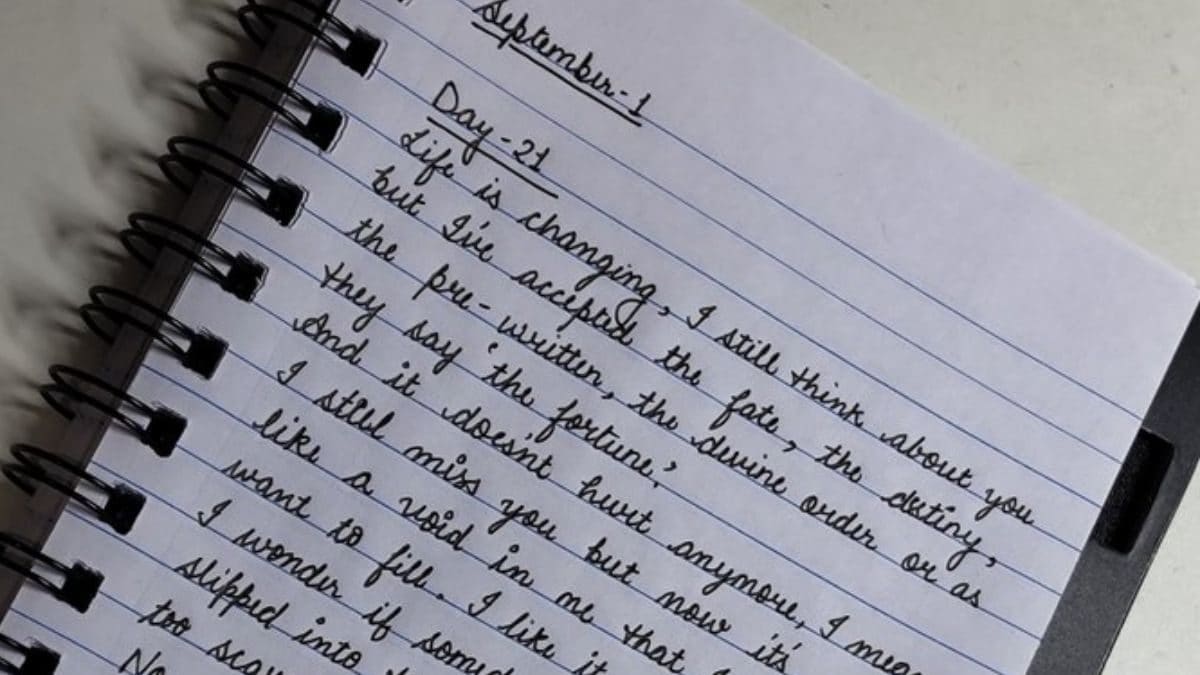 September-1
Day-21
Life is changing, I still think about you
but I've accepted the fate, the destiny,
the pre-written, the devine order or as
they say 'the fortune.'
And it does'nt hurt anymore, I mean
I still miss you but now it's
like a void in me that
want to fill. I like it
I wonder if
slipped into
too
No